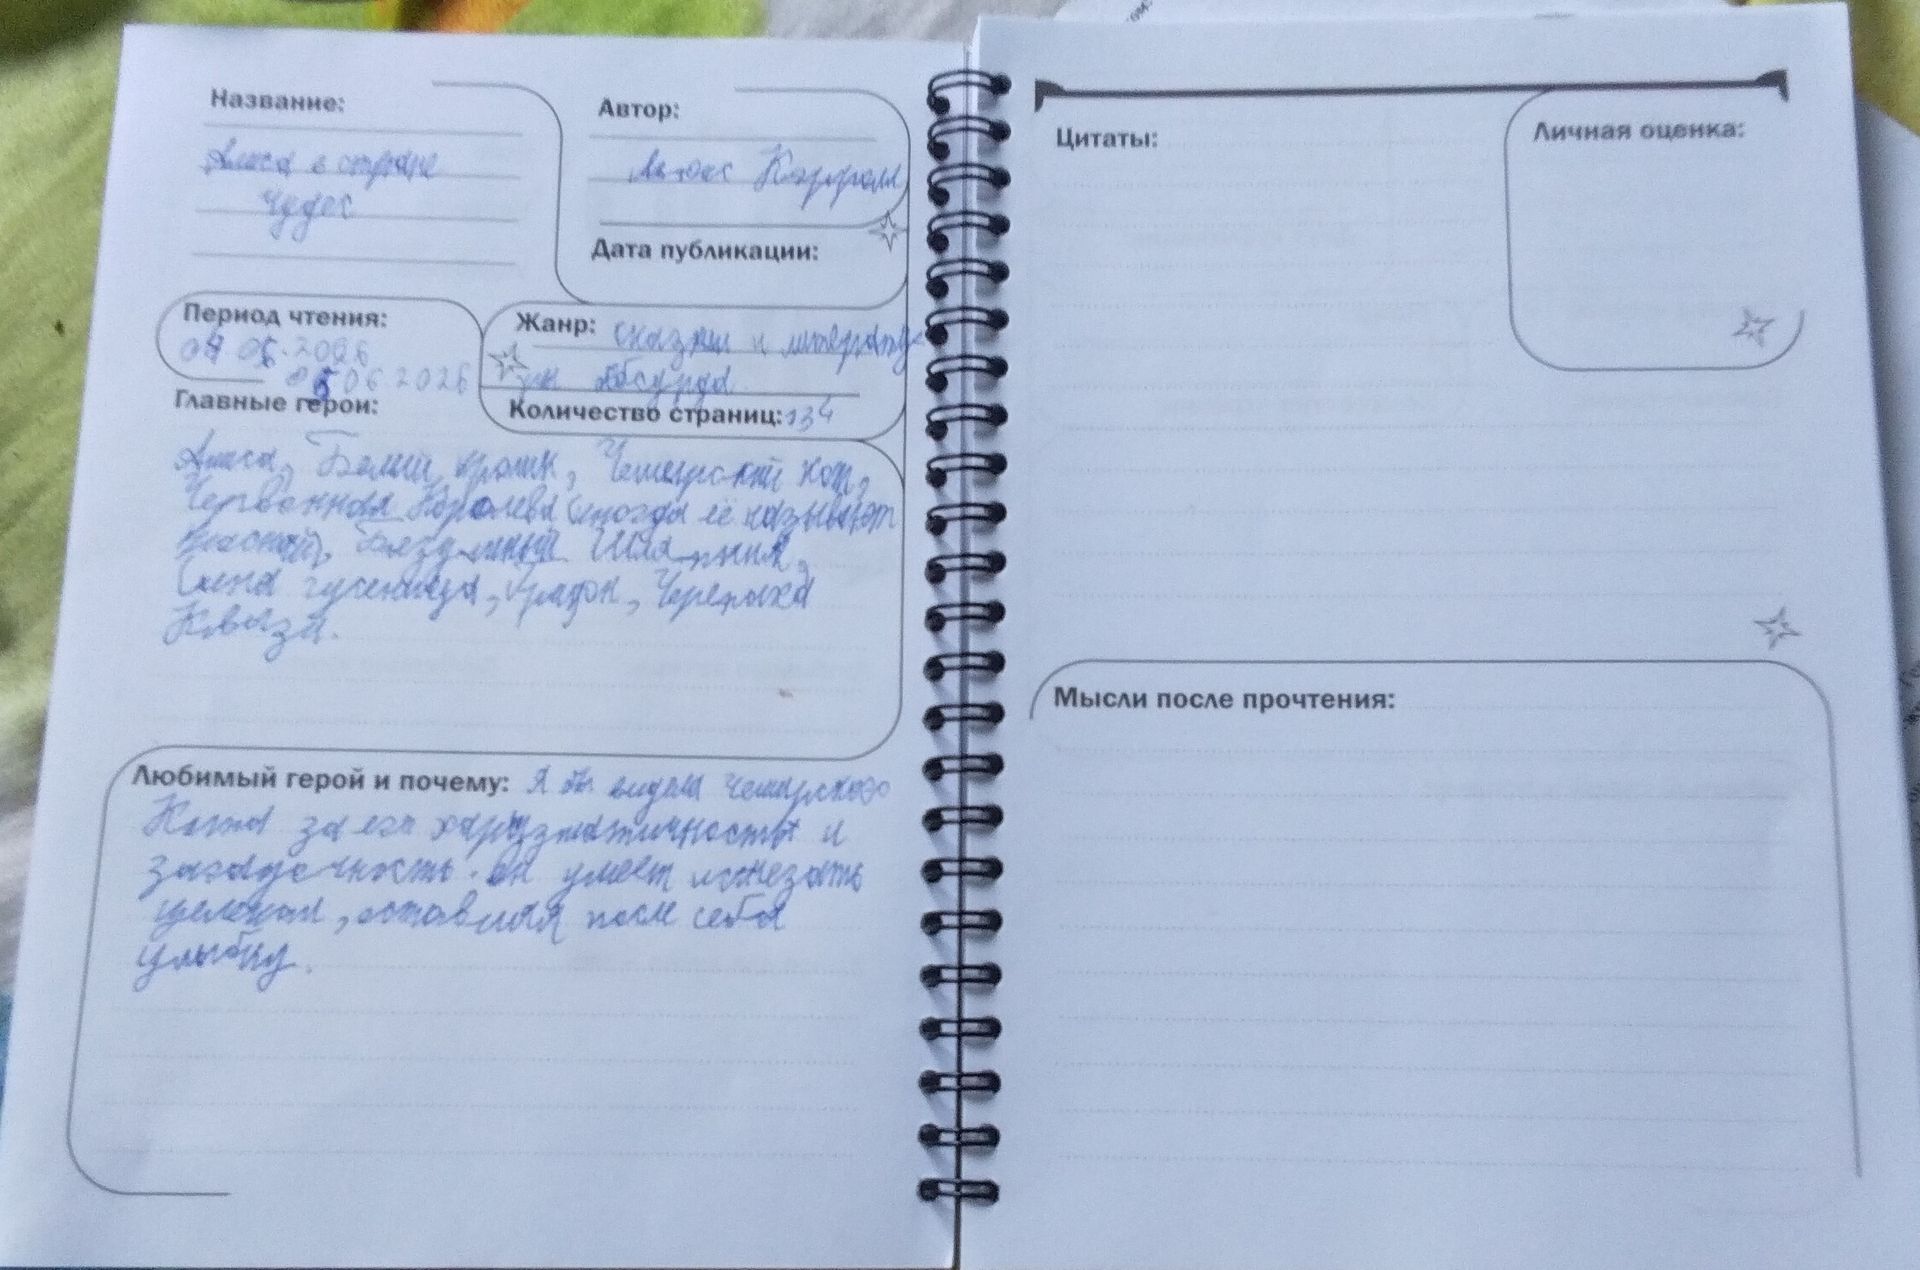 Название:
Алиса в стране
чудес
Автор:
Льюис Кэрролл
Дата публикации:
Период чтения:
04.06.2026
05.06.2026
Жанр: Сказки и литерату-
ра абсурда
Количество страниц: 134
Главные герои:
Алиса, Белый кролик, Чеширский кот,
Червонная Королева (иногда её называют
Красной), Безумный Шляпник,
Синя гусеница, Грифон, Черепаха
Квази.
Любимый герой и почему: Я бы выдела Чеширского
Кота за его харизматичность и
загадочность. Он умеет исчезать
целиком, оставляя после себя
улыбку.
Цитаты:
Личная оценка:
Мысли после прочтения: